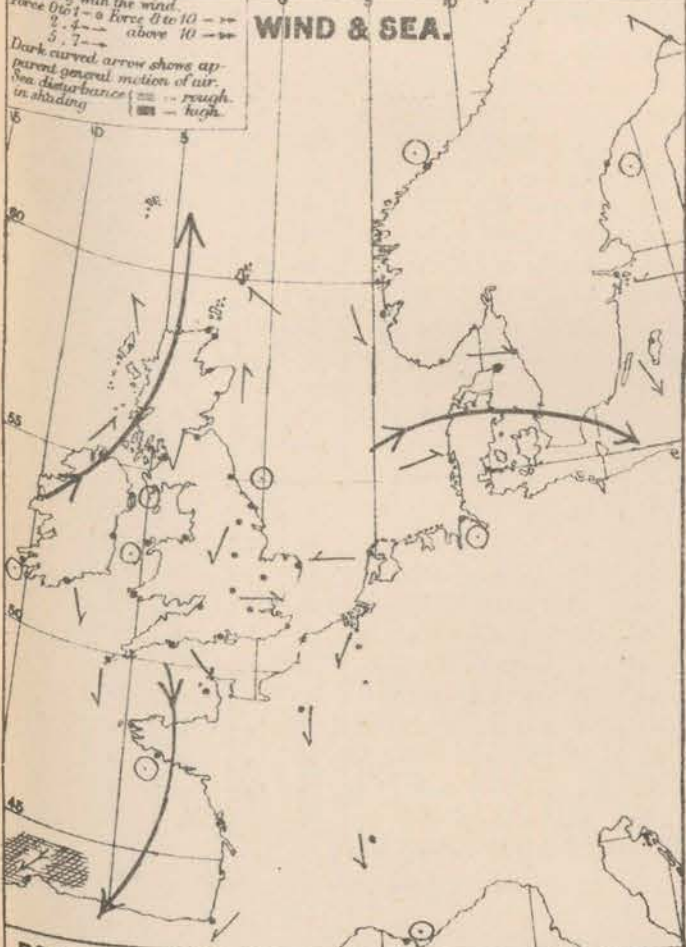 with the wind.
Force 0 to 1 – Force 8 to 10 –
2 . 4 – above 10 –
5 . 7 –
WIND & SEA.
Dark curved arrow shows ap-
parent general motion of air.
Sea disturbance -- rough.
in shading -- high.
5
10
15
10
5
60
55
50
45